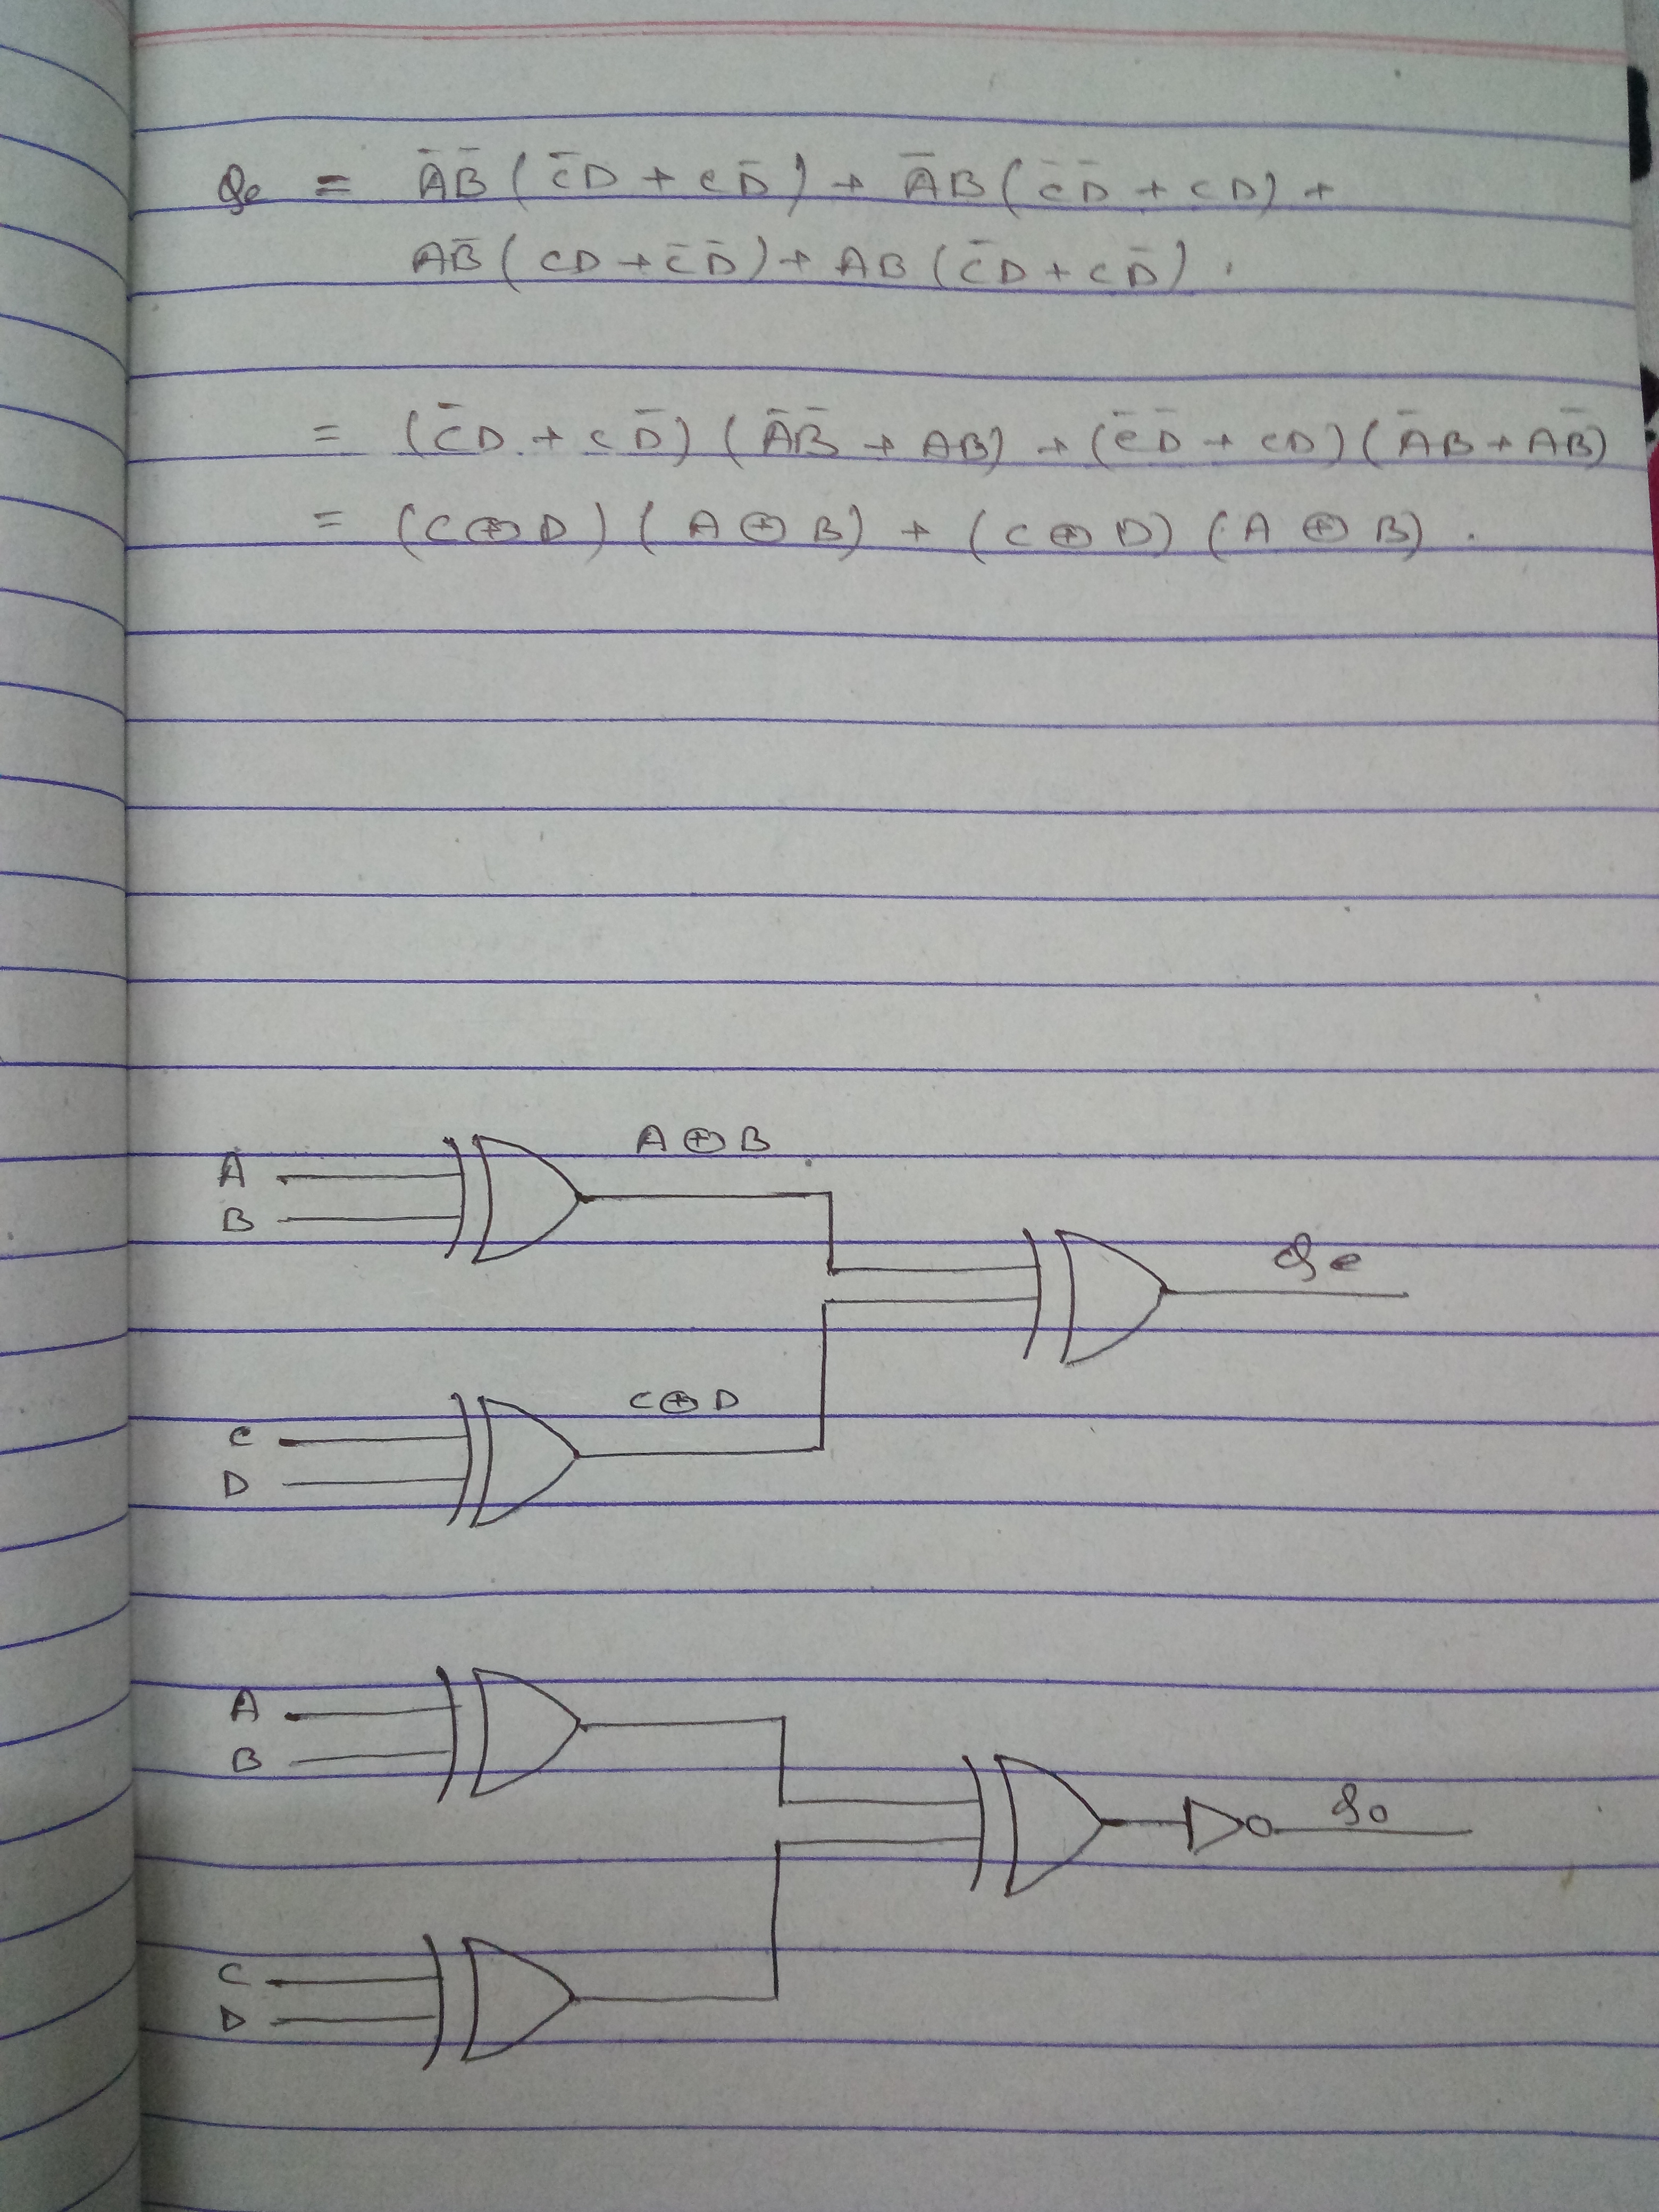 Qe = A̅B̅(C̅D + CD̅) + A̅B(C̅D̅ + CD) +
AB̅(CD + C̅D̅) + AB(C̅D + CD̅).
= (C̅D + CD̅)(A̅B̅ + AB) + (C̅D̅ + CD)(A̅B + AB̅)
= (C⊕D)(A⊕B) + (C⊕D)(A⊕B).
A⊕B
A
B
Qe
C⊕D
C
D
A
B
Qo
C
D